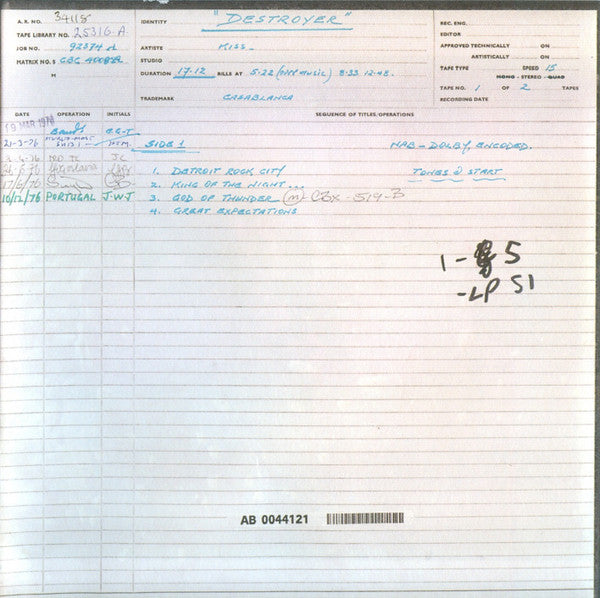 A. R. NO. 34118
TAPE LIBRARY NO. 25316-A
JOB NO. 92374 A
MATRIX NO.S CBC 400829
M
IDENTITY "DESTROYER"
ARTISTE KISS
STUDIO
DURATION 17.12 BILLS AT 5:22 (OVER MUSIC) 8:33 12:48.
TRADEMARK CASABLANCA
REC. ENG.
EDITOR
APPROVED TECHNICALLY ON
ARTISTICALLY ON
TAPE TYPE SPEED 15
MONO - STEREO - QUAD
TAPE NO. 1 OF 2 TAPES
RECORDING DATE
DATE OPERATION INITIALS SEQUENCE OF TITLES/OPERATIONS
19 MAR 1976
21-3-76
SIDE 1 NAB - DOLBY ENCODED.
1. DETROIT ROCK CITY TONES @ START
2. KING OF THE NIGHT...
17/6/76
3. GOD OF THUNDER (M) CBX-519-3
10/12/76 PORTUGAL J.W.J
4. GREAT EXPECTATIONS
1 - 5
-LP S1
AB 0044121